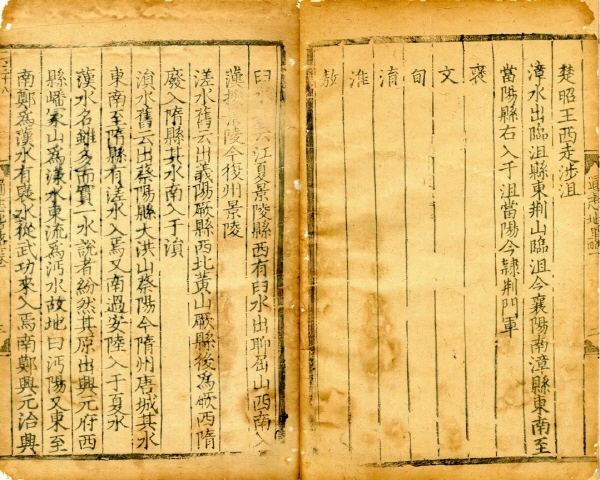 楚昭王西走涉沮
漳水出臨沮縣東荆山臨沮今襄陽南漳縣東南至
當陽縣右入于沮當陽今隷荆門軍
襃
文
甸
淯
淮
敖
臼云江夏景陵縣西有臼水出聊屈山西南入
漢陵今復州景陵
溠水舊云出義陽厥縣西北黄山厥縣後爲厥西隋
廢入隋縣其水南入于溳
溳水舊云出蔡陽縣大洪山蔡陽今隋州唐城其水
東南至隋縣有溠水入焉又南過安陸入于夏水
漢水名雖多而實一水說者紛然其原出興元府西
縣嶓冢山爲漾水東流爲沔水故地曰沔陽又東至
南鄭爲漢水有襃水從武功來入焉南鄭興元治興